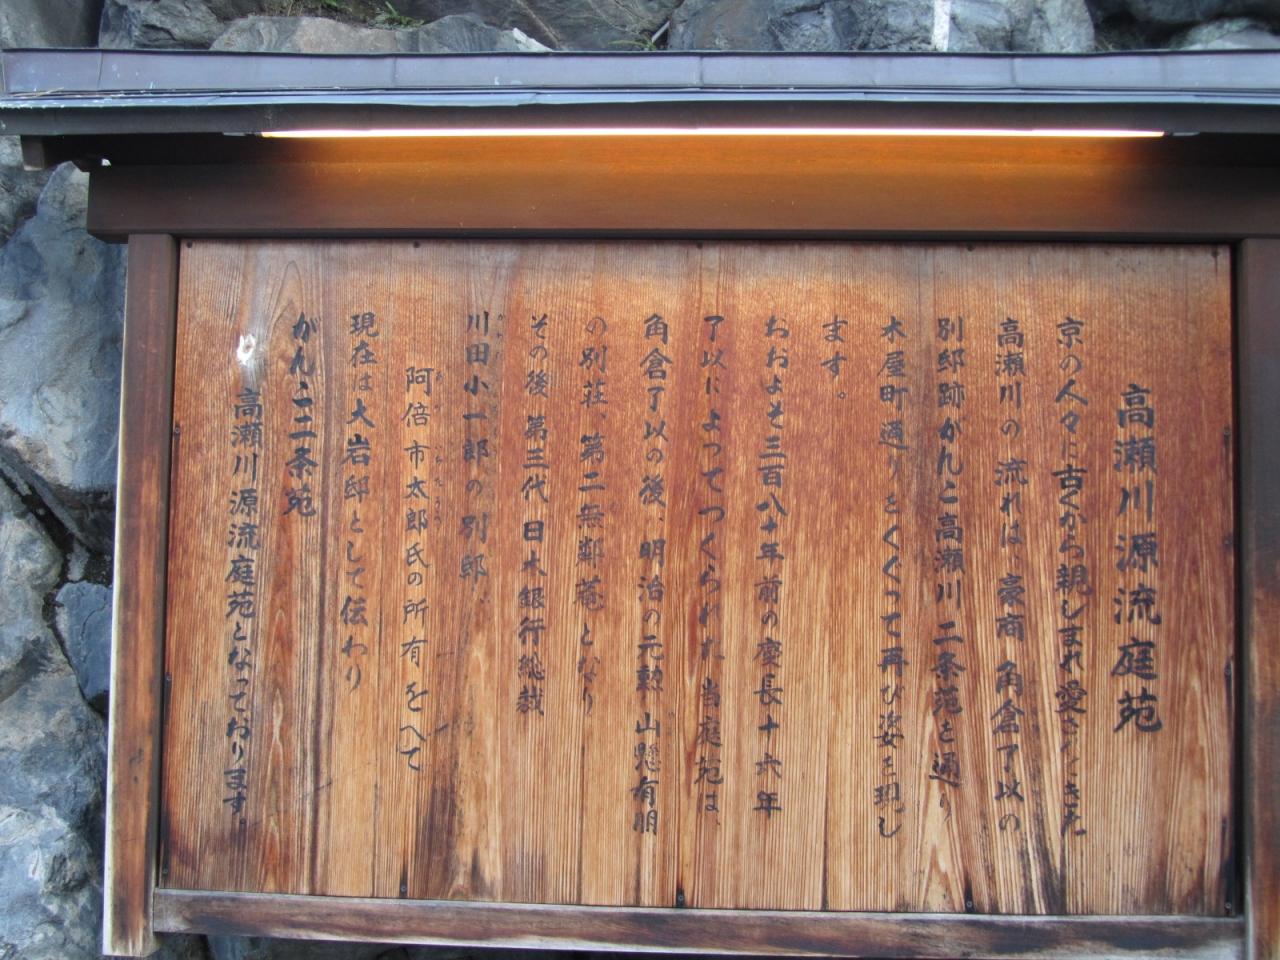 高瀬川源流庭苑
京の人々に古くから親しまれ愛されてきた
高瀬川の流れは、豪商 角倉了以の
別邸跡がんこ高瀬川二条苑を通り
木屋町通りをくぐって再び姿を現し
ます。
おおよそ三百八十年前の慶長十六年
了以によってつくられた当庭苑は、
角倉了以の後、明治の元勲 山懸有朋
の別荘、第二無鄰菴となり
その後 第三代 日本銀行総裁
川田小一郎の別邸、
阿倍市太郎氏の所有をへて
現在は大岩邸として伝わり
がんこ二条苑
高瀬川源流庭苑となっております。